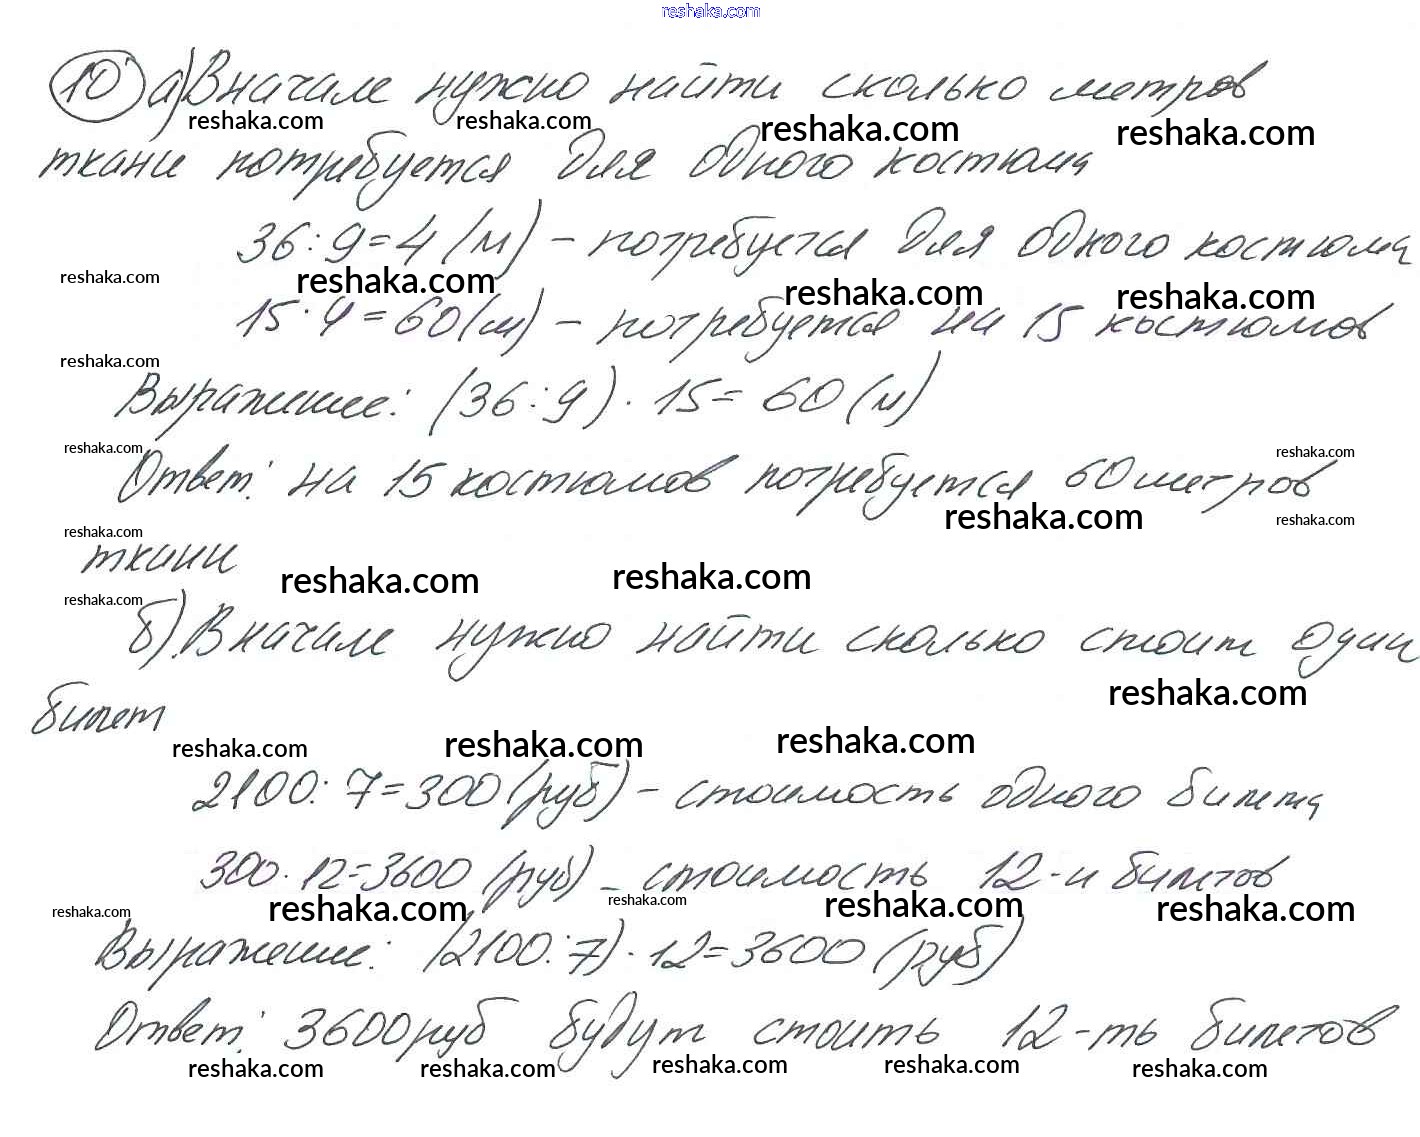 reshaka.com
10 а) Вначале нужно найти сколько метров
reshaka.com reshaka.com reshaka.com reshaka.com
ткани потребуется для одного костюма
36 : 9 = 4 (м) – потребуется для одного костюма
reshaka.com reshaka.com reshaka.com reshaka.com
15 · 4 = 60 (м) – потребуется на 15 костюмов
reshaka.com
Выражение: (36 : 9) · 15 = 60 (м)
reshaka.com reshaka.com
Ответ: на 15 костюмов потребуется 60 метров
reshaka.com reshaka.com
reshaka.com
ткани
reshaka.com reshaka.com
reshaka.com
б) Вначале нужно найти сколько стоит один
reshaka.com
билет
reshaka.com reshaka.com reshaka.com
2100 : 7 = 300 (руб) – стоимость одного билета
300 · 12 = 3600 (руб) – стоимость 12-и билетов
reshaka.com reshaka.com reshaka.com reshaka.com reshaka.com
Выражение: (2100 : 7) · 12 = 3600 (руб)
Ответ: 3600 руб будут стоить 12-ть билетов
reshaka.com reshaka.com reshaka.com reshaka.com reshaka.com